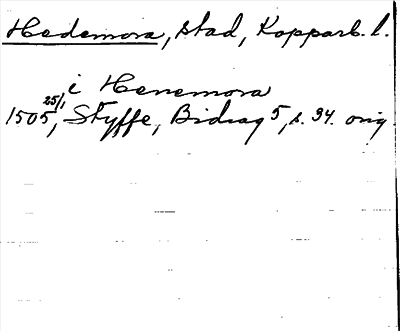 Hedemora, stad, Kopparb. l.
i Henemora
1505 25/1, Styffe, Bidrag 5, s. 34. orig